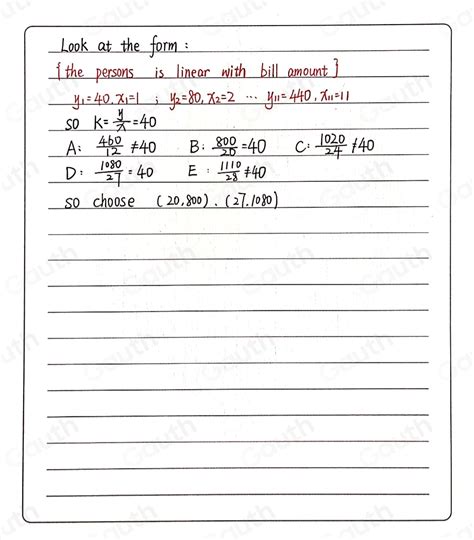 Look at the form :
{the persons is linear with bill amount}
y₁=40, x₁=1 ; y₂=80, x₂=2 ... y₁₁=440, x₁₁=11
so K=y/x=40
A: 460/12 ≠40 B: 800/20=40 C: 1020/24≠40
D: 1080/27=40 E: 1110/28≠40
so choose (20,800). (27.1080)
Gauth